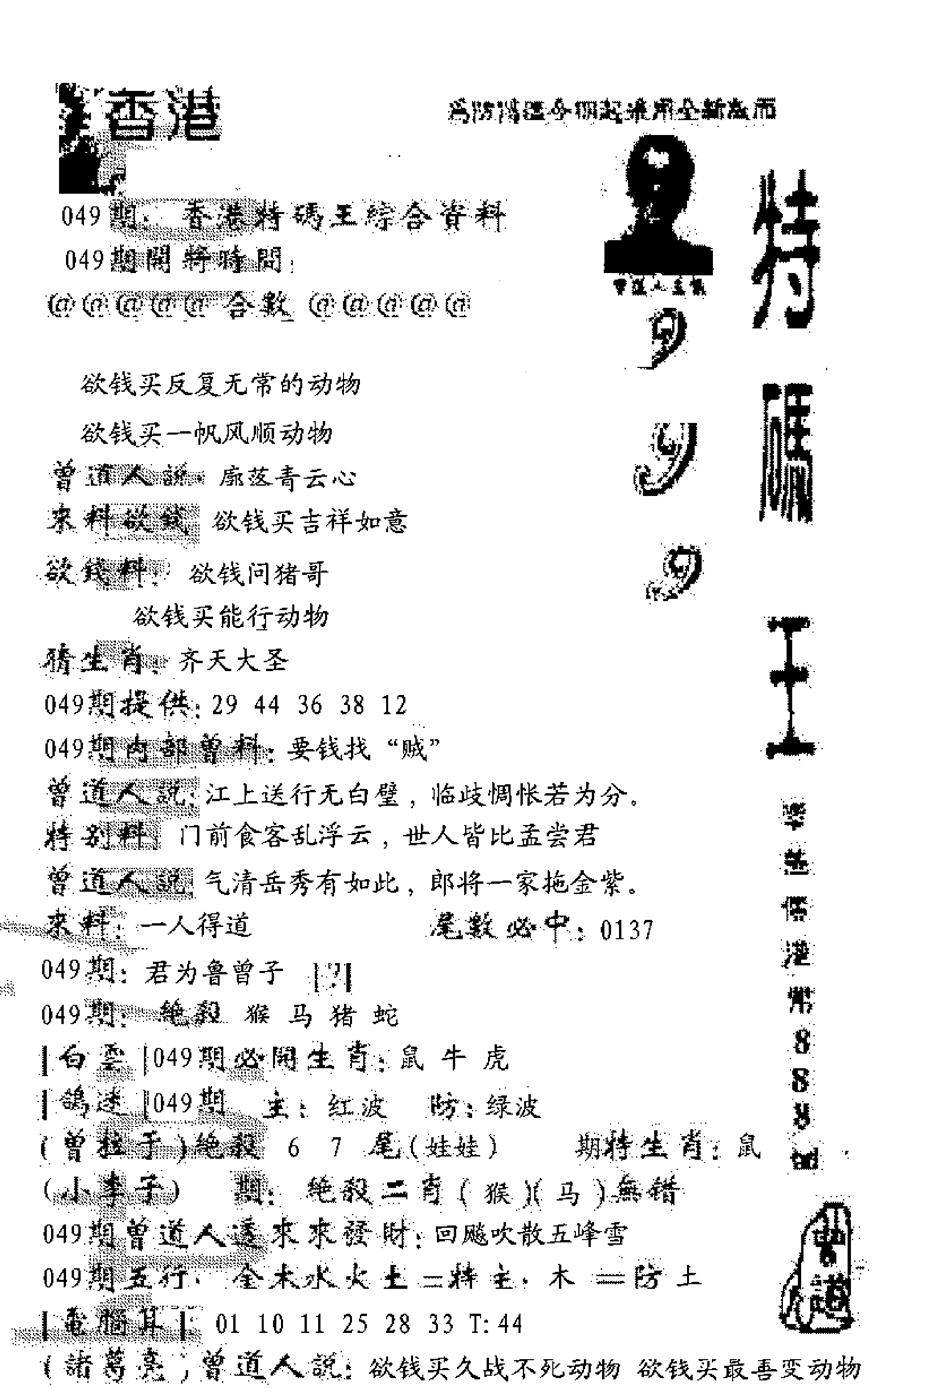 香港
為防搞混今期起採用全新版面
049期：香港特碼王綜合資料
049期開將時間：
@@@@@合數@@@@@
特碼王
欲钱买反复无常的动物
欲钱买一帆风顺动物
曾道人説：廓落青云心
來料欲錢 欲钱买吉祥如意
欲錢料：欲钱问猪哥
欲钱买能行动物
猜生肖：齐天大圣
049期提供：29 44 36 38 12
049期内部曾料：要钱找“贼”
曾道人説：江上送行无白璧，临歧惆怅若为分。
特别料：门前食客乱浮云，世人皆比孟尝君
曾道人説：气清岳秀有如此，郎将一家拖金紫。
來料：一人得道 尾數必中：0137
049期：君为鲁曾子 |?|
049期：絶殺 猴 马 猪 蛇
|白雲|049期必開生肖：鼠 牛 虎
|鴿迷|049期 主：红波 防：绿波
(曾拉于)絶殺 6 7 尾(娃娃) 期特生肖：鼠
(小李子) 期：絶殺二肖(猴)(马)無錯
049期曾道人透來來發財：回飚吹散五峰雪
049期五行：金木水火土＝特主：木＝防土
|電腦算|：01 10 11 25 28 33 T:44
(諸葛亮)曾道人説：欲钱买久战不死动物 欲钱买最善变动物
港幣888
曾道